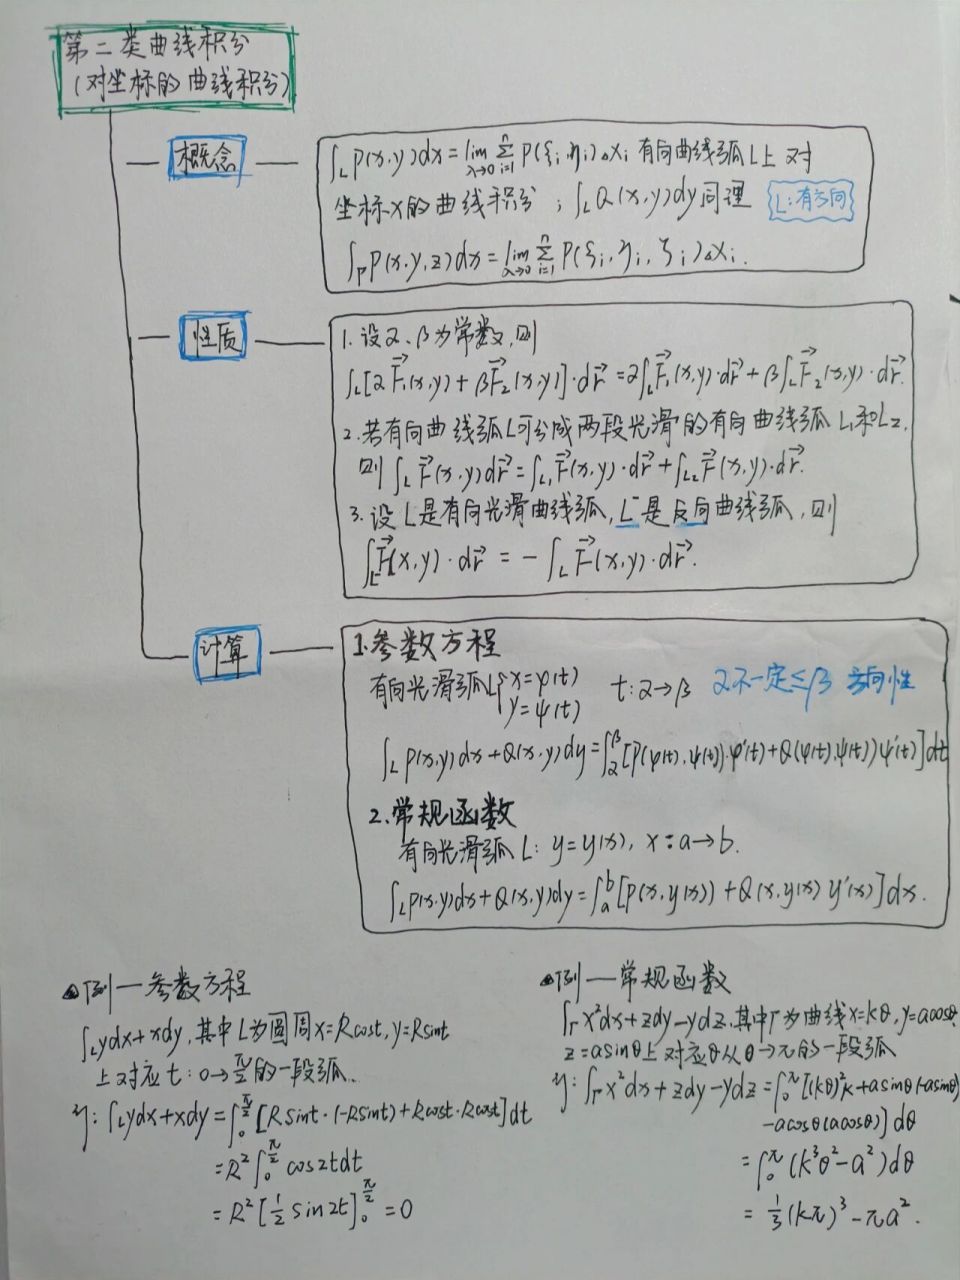 第二类曲线积分
(对坐标的曲线积分)
概念
∫_L P(x,y)dx = lim_{λ→0} Σ_{i=1}^{n} P(ξi,ηi)△xi 有向曲线弧L上对
坐标x的曲线积分；∫_L Q(x,y)dy同理 L:有方向
∫_Γ P(x,y,z)dx = lim_{λ→0} Σ_{i=1}^{n} P(ξi,ηi,ζi)△xi.
性质
1.设α、β为常数,则
∫_L[αF⃗₁(x,y)+βF⃗₂(x,y)]·dr⃗=α∫_L F⃗₁(x,y)·dr⃗+β∫_L F⃗₂(x,y)·dr⃗.
2.若有向曲线弧L可分成两段光滑的有向曲线弧L₁和L₂,
则∫_L F⃗(x,y)dr⃗=∫_{L₁}F⃗(x,y)·dr⃗+∫_{L₂}F⃗(x,y)·dr⃗.
3.设L是有向光滑曲线弧,L⁻是反向曲线弧,则
∫_{L⁻}F⃗(x,y)·dr⃗=-∫_L F⃗(x,y)·dr⃗.
计算
1.参数方程
有向光滑弧L{x=φ(t) y=ψ(t) t:α→β α不一定≤β 方向性
∫_L P(x,y)dx+Q(x,y)dy=∫_α^β[P(φ(t),ψ(t))·φ′(t)+Q(φ(t),ψ(t))ψ′(t)]dt
2.常规函数
有向光滑弧L: y=y(x), x:a→b.
∫_L P(x,y)dx+Q(x,y)dy=∫_a^b[P(x,y(x))+Q(x,y(x)y′(x)]dx.
例一参数方程
∫_L ydx+xdy,其中L为圆周x=Rcost,y=Rsint
上对应t:0→π/2的一段弧.
解:∫_L ydx+xdy=∫_0^{π/2}[Rsint·(-Rsint)+Rcost·Rcost]dt
=R²∫_0^{π/2}cos2tdt
=R²[1/2 sin2t]_0^{π/2}=0
例一常规函数
∫_Γ x²dx+zdy-ydz,其中Γ为曲线x=kθ,y=acosθ,
z=asinθ上对应θ从0→π的一段弧
解:∫_Γ x²dx+zdy-ydz=∫_0^π[(kθ)²k+asinθ(-asinθ)
-acosθ(acosθ)]dθ
=∫_0^π(k³θ²-a²)dθ
=1/3(kπ)³-πa².